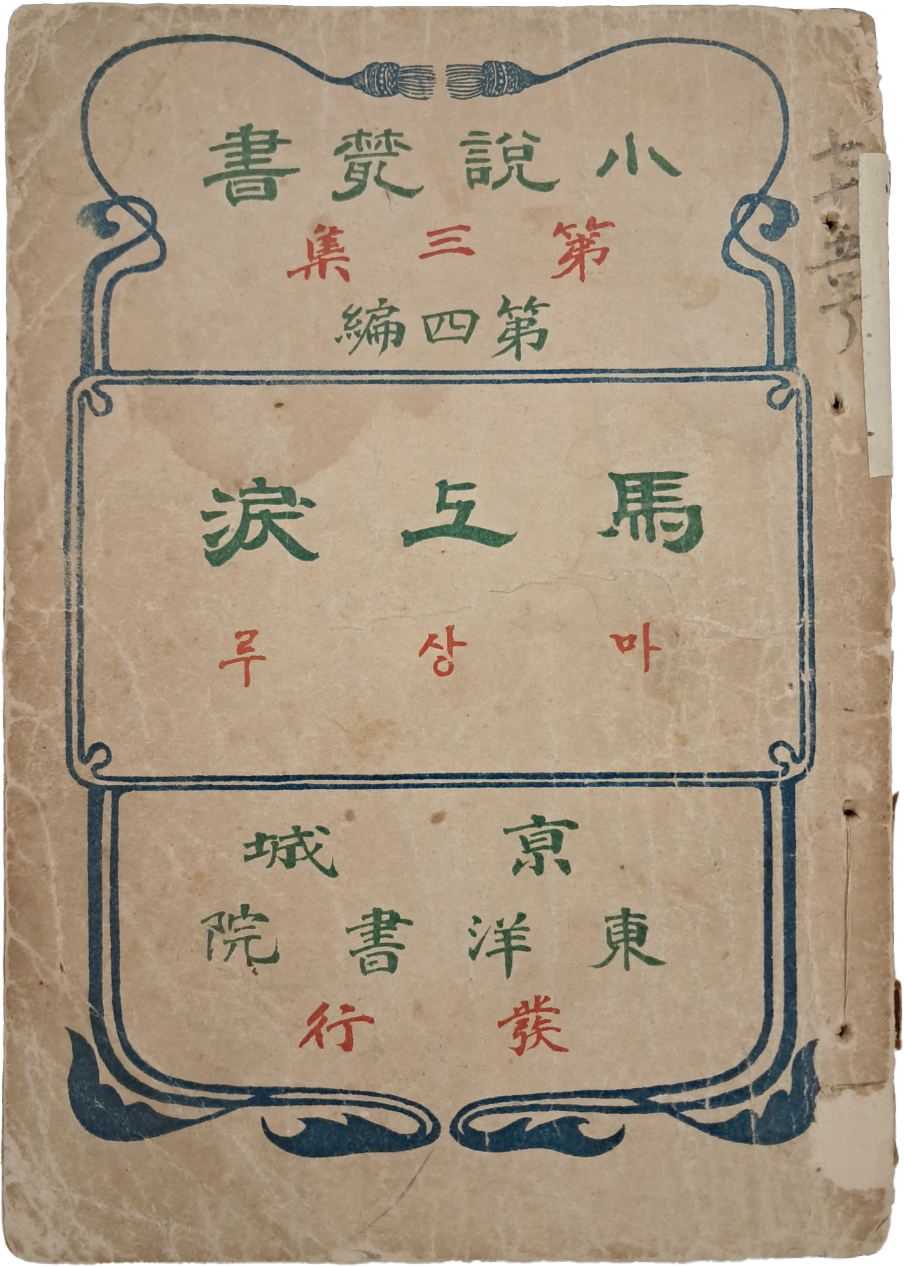 小說叢書
第三集
第四編
馬上淚
마상루
亰城
東洋書院
發行